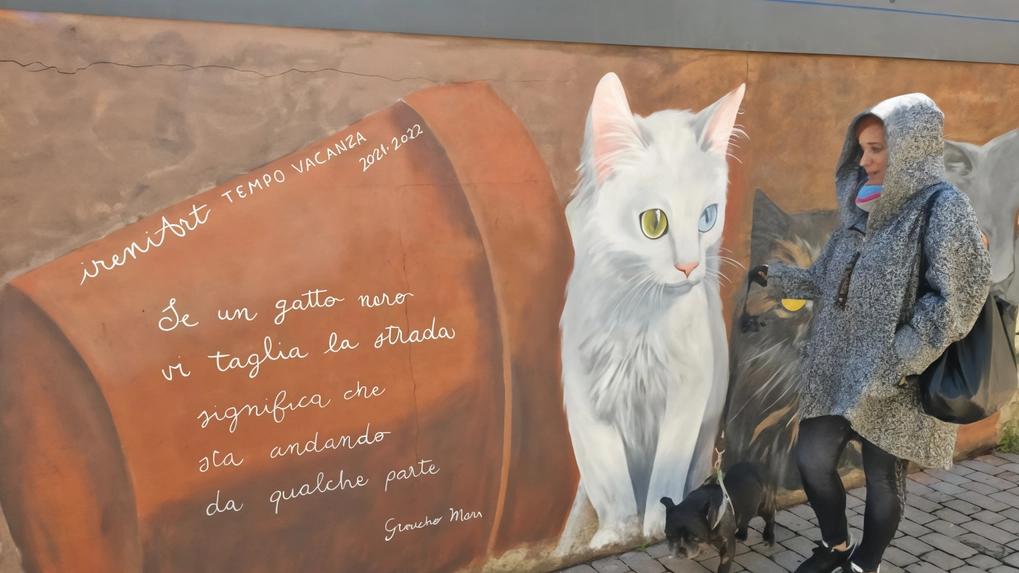 ireniArt TEMPO VACANZA
2021-2022
Se un gatto nero
vi taglia la strada
significa che
sta andando
da qualche parte
Groucho Marx